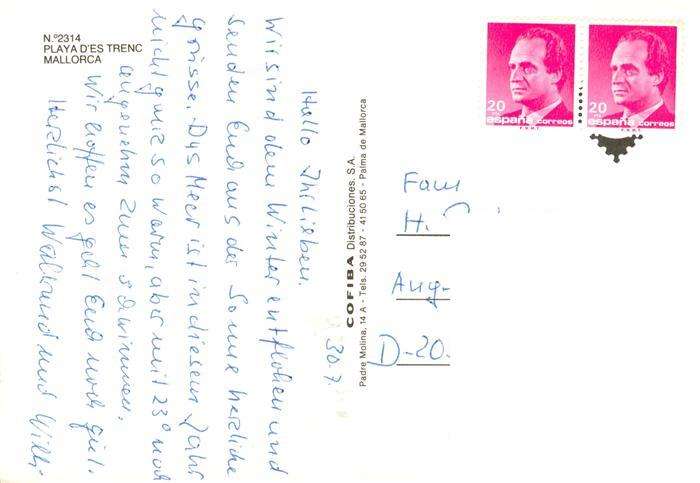 N.º2314
PLAYA D'ES TRENC
MALLORCA
30.7.
Hallo Ihr Lieben.
Wir sind dem Winter entflohen und
senden Euch aus der Sonne herzliche
Grüsse. Das Meer ist in diesem Jahr
nicht ganz so warm, aber mit 23° noch
angenehm zum schwimmen.
Wir hoffen es geht Euch noch gut.
Herzlichst Waltraud und Willi
COFIBA Distribuciones, S.A.
Padre Molina, 14 A - Tels. 29 52 87 - 41 50 65 - Palma de Mallorca
20
españa correos
F.N.M.T.
20
españa correos
F.N.M.T.
Fam
H.
Aug-
D-20.